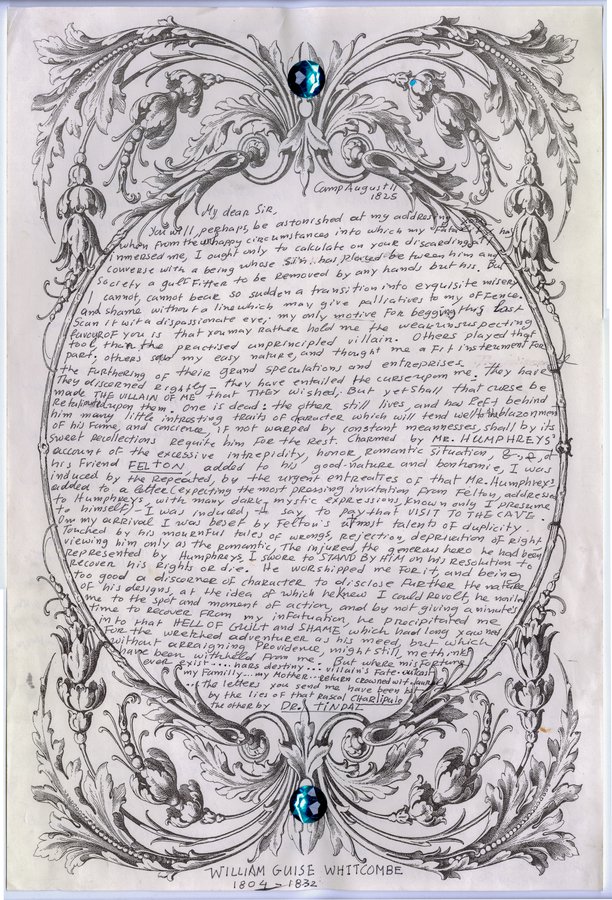 Camp August 11
1825
My dear Sir,
You will, perhaps, be astonished at my addressing
when from the unhappy circumstances into which my
inmersed me, I ought only to calculate on your discarding all
converse with a being whose Sin has placed between him and
Society a gulf fitter to be removed by any hands but his. But
I cannot, cannot bear so sudden a transition into exquisite misery
and shame without a line which may give palliatives to my offence.
Scan it with a dispassionate eye; my only motive for begging this last
favour of you is that you may rather hold me the weak unsuspecting
tool, than the practised unprincipled villain. Others played that
part; others saw my easy nature, and thought me a fit instrument for
the furthering of their grand speculations and enterprises. They have
They discerned rightly – they have entailed the curse upon me.
made THE VILLAIN OF ME that THEY wished. But yet shall that curse be
Retaliated upon them. One is dead: the other still lives, and has left behind
him many little intresting traits of character which will tend well to
of his fame, and concience, if not warped by constant meannesses, shall by its
Sweet recollections requite him for the Rest. Charmed by MR. HUMPHREYS'
account of the excessive intrepidity, honor, romantic situation, &, &, of
his Friend FELTON, added to his good-nature and bonhomie, I was
induced by the repeated, by the urgent entreaties of that Mr. Humphreys
added to a letter (expecting the most pressing invitation from Felton, addressed
to Humphreys, with many dark, mystic expressions, known only I presume
to himself – I was induced, I say, to pay that VISIT TO THE CAVE
On my arrival I was beset by Felton's utmost talents of duplicity..
Touched by his mournful tales of wrongs, rejection, deprivation of right
viewing him only as the romantic, The injured, the generous hero he had been
Represented by Humphreys I swore to STAND BY HIM on his Resolution to
Recover his Rights or die. He worshipped me for it, and being
too good a discerner of character to disclose further the nature
of his designs, at the idea of which he knew I could Revolt, he nailed
me to the spot and moment of action, and by not giving a minute's
time to recover from my infatuation, he precipitated me
into that HELL OF GUILT and SHAME which had long yawned
For the wretched adventurer as his meed, but which
without arraigning Providence, might still, methink
have been withheld from me. But where misfortune
ever exist .... hars destiny... villain's Fate. outcast
my Familly... my Mother... return crowned wit
... The letters you send me have been
by the lies of that Rascal CHARLIPULO
the other by DR. TINDAL
WILLIAM GUISE WHITCOMBE
1804 – 1832